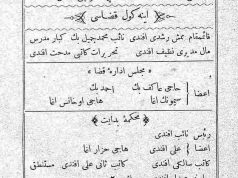 اینه كول قضاسی
قائممقام ممش رشدی افندی نائب محمد جمیل بك كبار مدرس
مال مدیری نظیف افندی تحریرات كاتبی مدحت افندی
« مجلس ادارهٔ قضا »
اعضا حاجی عاكف بك احمد بك
سیمونك اغا هاجی اوخانس اغا
« محكمهٔ بدایت »
رئیس نائب افندی
اعضا علی افندی هاجی حزار اغا
كاتب سالكی افندی كاتب ثانی علی افندی مستنطق